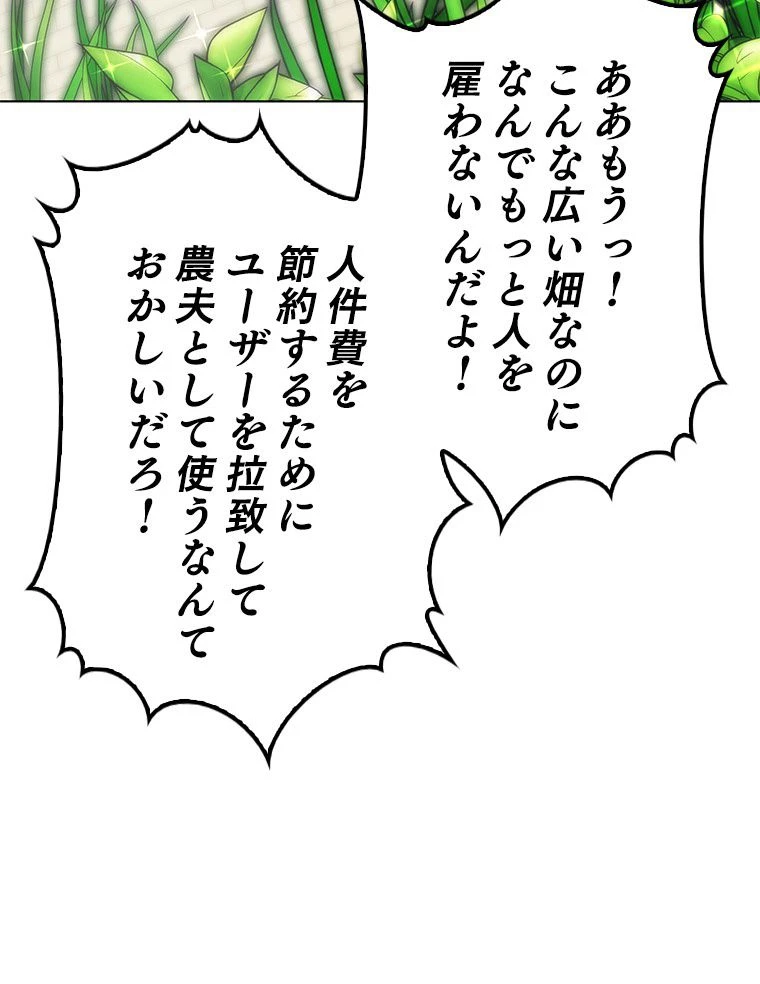 ああもうっ！
こんな広い畑なのに
なんでもっと人を
雇わないんだよ！
人件費を
節約するために
ユーザーを拉致して
農夫として使うなんて
おかしいだろ！